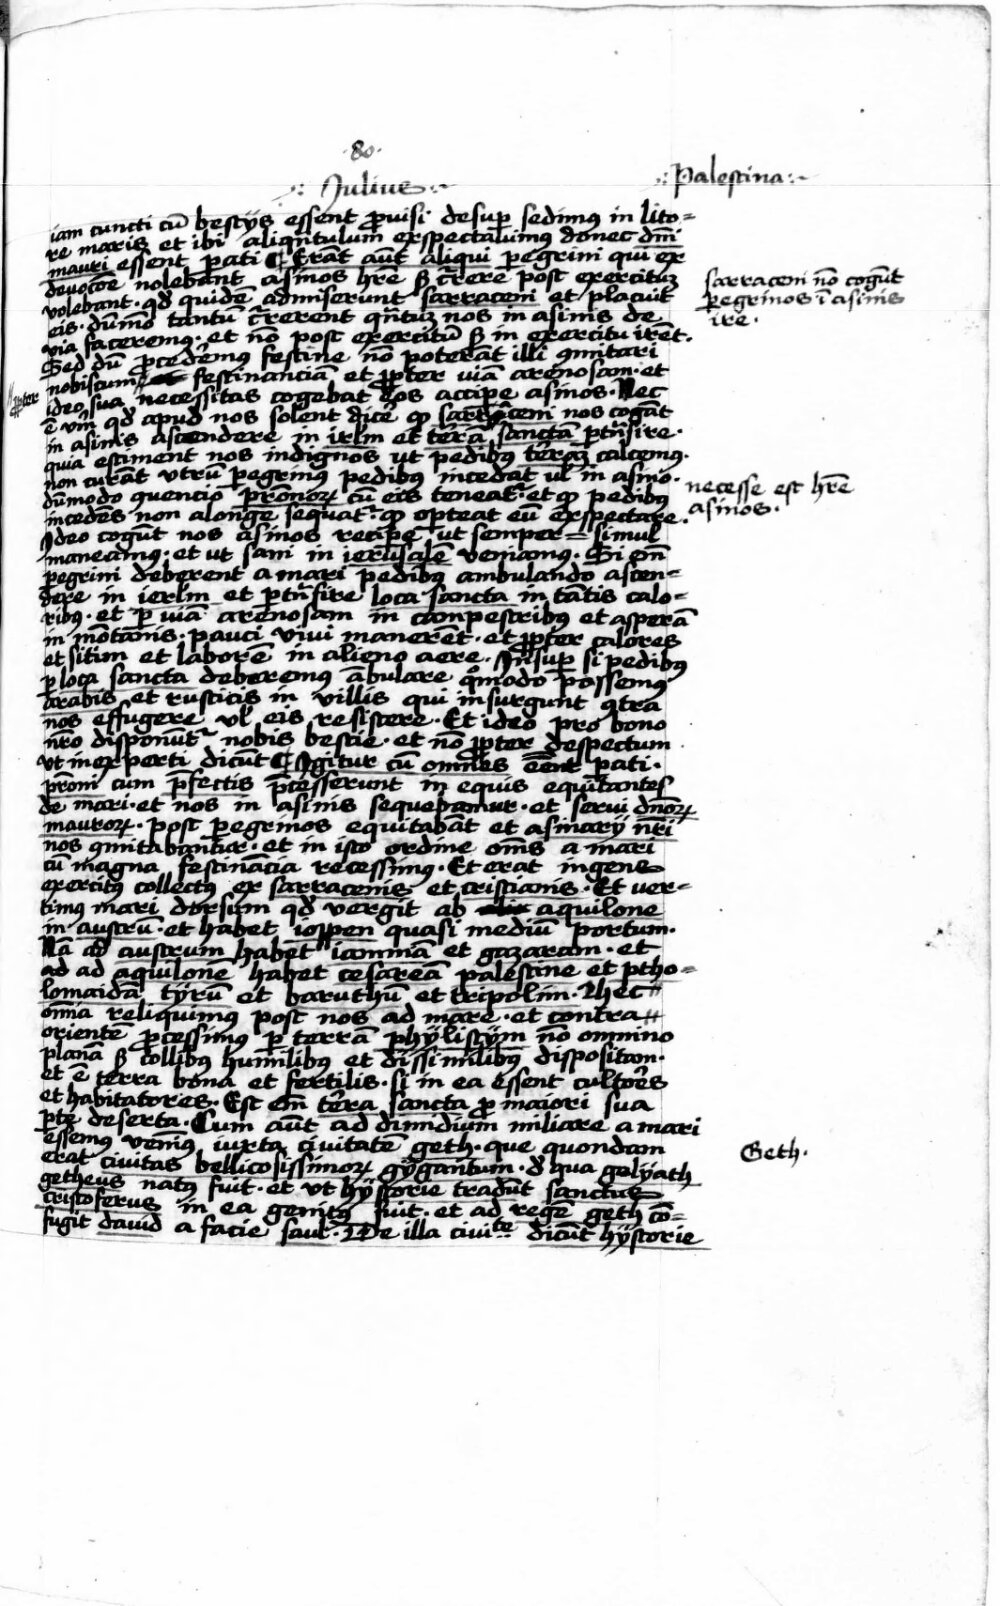 ·80·
·: Julius :·
·: Palestina :·
iam cuncti cū bestijs essent ꝓuisi desuꝑ sedimꝰ in lito=
re maris et ibi aliqn̄tulum exspectauimus donec dn̄i
mauri essent pati ¶ Erāt aut̄ aliqui ꝑegrini qui ex
deuocōe nolebant asinos hr̄e sꝫ c̄rrere post exercituꝫ
volebant · qd̓ quidē admiserunt sarraceni et placuit
eis · dūmō tantū c̄rrerent qn̄tuꝫ nos in asinis de
via faceremꝰ · et nō post exercitū sꝫ in exercitu irēt ·
Sed dū ꝓcederēmꝰ festine nō poterāt illi ꝯmitari
nobiscum festinanciā et ꝓpter viam arenosam · et
ꝓpter
ideo sua necessitas cogebat eos accipe asinos · Nec
ē vm̄ qd̓ apud nos solent dicē ꝙ sarraceni nos cogāt
in asinis ascendere in irlm̄ et terrā sanctā ꝑtn̄sire ·
quia estiment nos indignos ut pedibꝰ terraꝫ calcemꝰ ·
non curāt vtrū ꝑegrinus pedibus incedat ul̓ in asino ·
dūmodo quencio pr̄onorꝫ cū eis teneat᷑ · et ꝙ pedibꝰ
incedēs non alonge sequat᷑ · ꝙ oꝑteat eū exspectare ·
Ideo cogūt nos asinos recipe ut semper = simul
maneamꝰ · et ut sani in ierusalē veniamus · Si em̄
ꝑegrini deberent a mari pedibꝰ ambulando ascen=
dere in ierlm̄ et ꝑtn̄sire loca sancta in tātis calo=
ribꝰ · et ꝑ viā arenosam in campestribus et asperā
in mōtanis · pauci viui manerēt · et ꝓpter calores
et sitim et laborē in alieno aere · Insuꝑ si pedibꝰ
ꝑ loca sancta deberemus ābulare qͦmodo possemꝰ
arabis et rusticis in villis qui insurgunt ꝯtra
nos effugere vl̓ eis resistere · Et ideo pro bono
nr̄o disponūt᷑ nobis bestie · et nō ꝓpter despectum
ut inexperti dicūt ¶ Igitur cū omnēs eēnt pati ·
pr̄oni cum p̄fectis p̄cesserunt in equis equitantes
de mari · et nos in asinis sequebamur · et serui dn̄orꝫ
maurorꝫ · post ꝑegrinos equitabāt et asinarij nr̄i
nos ꝯmitabantur · et in isto ordine om̄s a mari
cū magna festinācia recessimꝰ · Et erat ingens
exercitꝰ collectꝰ ex sarracenis et cristianis · Et ver=
timus mari dorsum qd̓ vergit ab aquilone
in austrū · et habet ioppen quasi mediū portum ·
Nā ad austrum habēt iamniā et gazaram · et
ad ad aquilone habet cesareā palestine et ptho=
lomaidā tyrū et baruthū et tripolim · Hec
om̄ia reliquimus post nos ad mare · et contra
orientē ꝓcessimus ꝑ terrā phylistijm nō omnino
planā sꝫ collibus humilibꝰ et dissimilibꝰ dispositam ·
et ē terra bona et fertilis · si in ea essent cultores
et habitatores · Est em̄ terra sancta ꝓ maiori sua
ꝑte deserta · Cum aūt ad dimidium miliare a mari
essemus venimꝰ iuxta ciuitatē geth · que quondam
erat ciuitas bellicosissimorꝫ gygantum · d̓ qua golyath
getheus natꝰ fuit · et ut hystorie tradūt sanctus
cristoferus in ea genitꝰ fuit · et ad regē geth cō=
fugit dauid a facie saul · De illa ciuite dicūt hystorie
sarraceni nō cogūt
ꝑegrinos ī asinis
ire ·
necesse est hr̄e
asinos ·
Geth ·